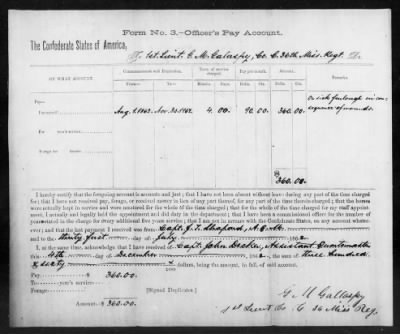 Form No. 3.—Officer's Pay Account.
The Confederate States of America,
To 1st Lieut. G. M. Galaspy, Co. C. 36th Miss. Regt. Dr.
ON WHAT ACCOUNT. Commencement and Expiration. Term of service charged. Pay per month. Amount. Remarks
From— To—
Pay— On sick furlough in con-
Personal Aug. 1, 1862. Nov. 30, 1862. 4 00 90 00 360.00 sequence of wounds.
For
Forage for
$360.00
I hereby certify that the foregoing account is accurate and just; that I have not been absent without leave during any part of the time charged
for; that I have not received pay, forage, or received money in lieu of any part thereof, for any part of the time therein charged; that the horses
were actually kept in service and were mustered for the whole of the time charged; that for the whole of the time charged for my staff appoint-
ment, I actually and legally held the appointment and did duty in the department; that I have been a commissioned officer for the number of
years stated in the charge for every additional five years service; that I am not in arrears with the Confederate States, on any account whatso-
ever; and that the last payment I received was from Capt. J. T. A. Q. M.
and to the thirty first day of July
at the same time, acknowledge that I have received of Capt. John Decker, Assistant Quartermaster
this 4th day of December 1862, the sum of three hundred
& sixty dollars, being the amount, in full, of said account.
100
Pay $ 360.00
years' service [Signed Duplicates.]
Forage
Amount $ 360.00 G. M. Gallaspy
1st Lieut Co C 36 Miss Reg.